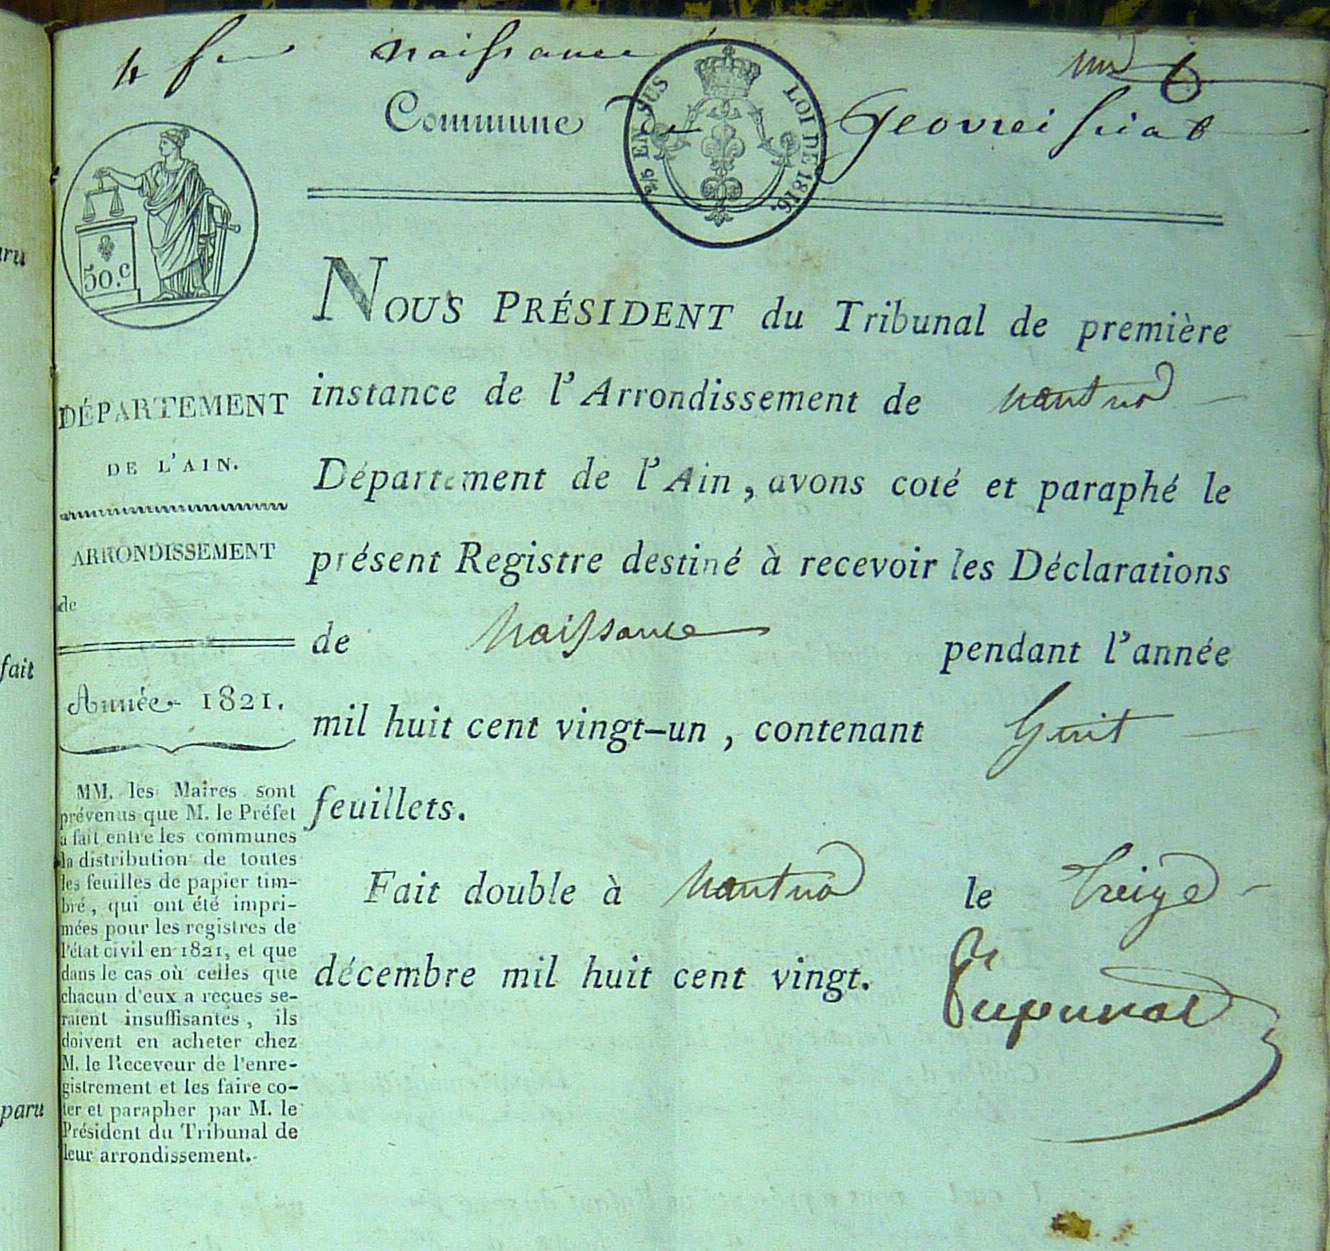 4 fr naissance
Commune de Geovreissiat
2/5 EN SUS LOI DE 1816.
50.c
NOUS PRÉSIDENT du Tribunal de première
instance de l'Arrondissement de nantua
Département de l'Ain, avons coté et paraphé le
présent Registre destiné à recevoir les Déclarations
de Naissance pendant l'année
mil huit cent vingt-un, contenant huit
feuillets.
Fait double à nantua le treize
décembre mil huit cent vingt.
DÉPARTEMENT
DE L'AIN.
ARRONDISSEMENT
de
Année 1821.
MM. les Maires sont
prévenus que M. le Préfet
a fait entre les communes
la distribution de toutes
les feuilles de papier tim-
bré, qui ont été impri-
mées pour les registres de
l'état civil en 1821, et que
dans le cas où celles que
chacun d'eux a reçues se-
raient insuffisantes, ils
doivent en acheter chez
M. le Receveur de l'enre-
gistrement et les faire co-
ter et parapher par M. le
Président du Tribunal de
leur arrondissement.
fait
paru